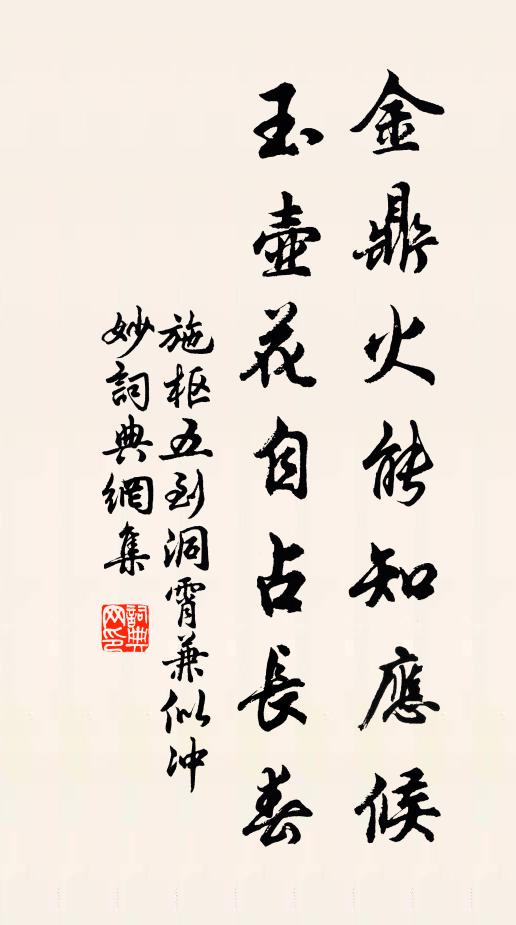 金鼎火能知應候
玉壺花自占長春
施枢五到洞霄兼似冲
妙詞典網集
詞典网印